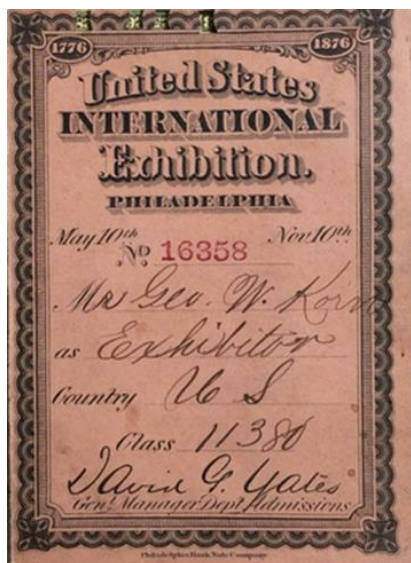 1776 1876
United States
INTERNATIONAL
Exhibition.
PHILADELPHIA
May 10th Nov 10th.
No 16358
Mr Geo. W.
as Exhibitor
Country U S
Class 11380
David G. Yates
Genl Manager Dept Admissions.
Philadelphia Bank Note Company